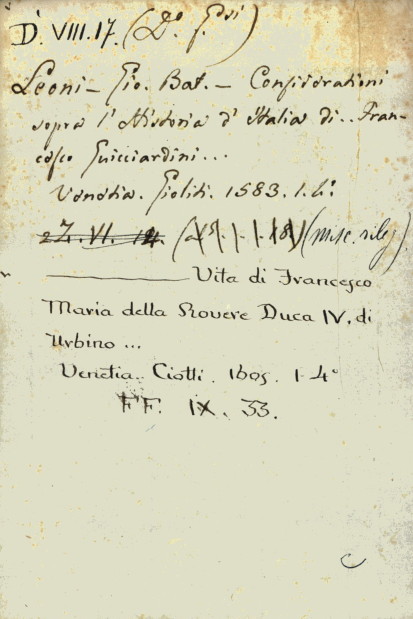 D. VIII. 17. (Do. Gesi)
Leoni - Gio. Bat. - Considerationi
sopra l'Historia d'Italia di.. Fran-
cesco Guicciardini...
Venetia. Gioliti. 1583. 1. 4.º
2Z. VI. 14. (misc. rileg)
Vita di Francesco
Maria della Rovere Duca IV, di
Urbino ...
Venetia. Ciotti. 1605. 1-4º
FF. IX. 33.